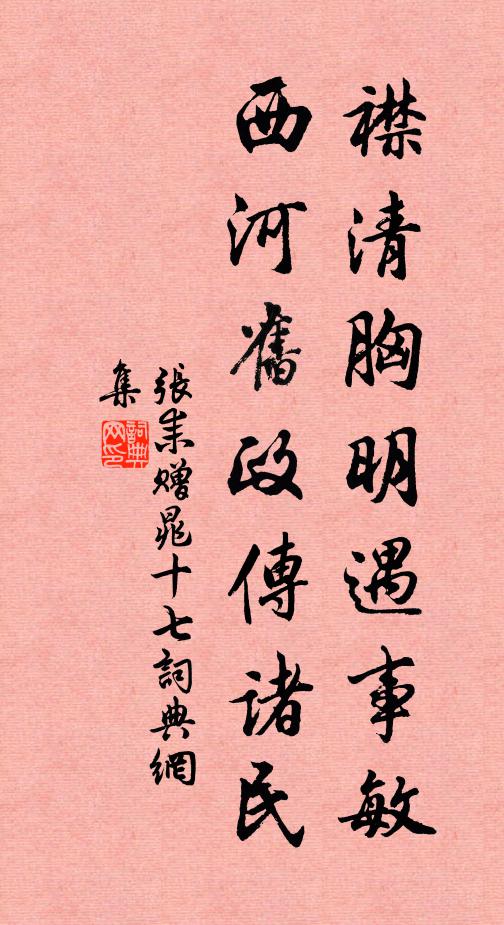 襟清胸明遇事敏
西河舊政傳諸民
張耒贈晁十七詞典網
集
詞典網印